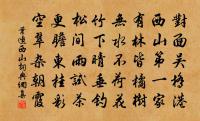 對面吳橋港
西山第一家
有林皆橘樹
無水不荷花
竹下晴垂釣
松間雨試茶
更瞻東挂彩
空翠雜朝霞
葉適西山詞典網集